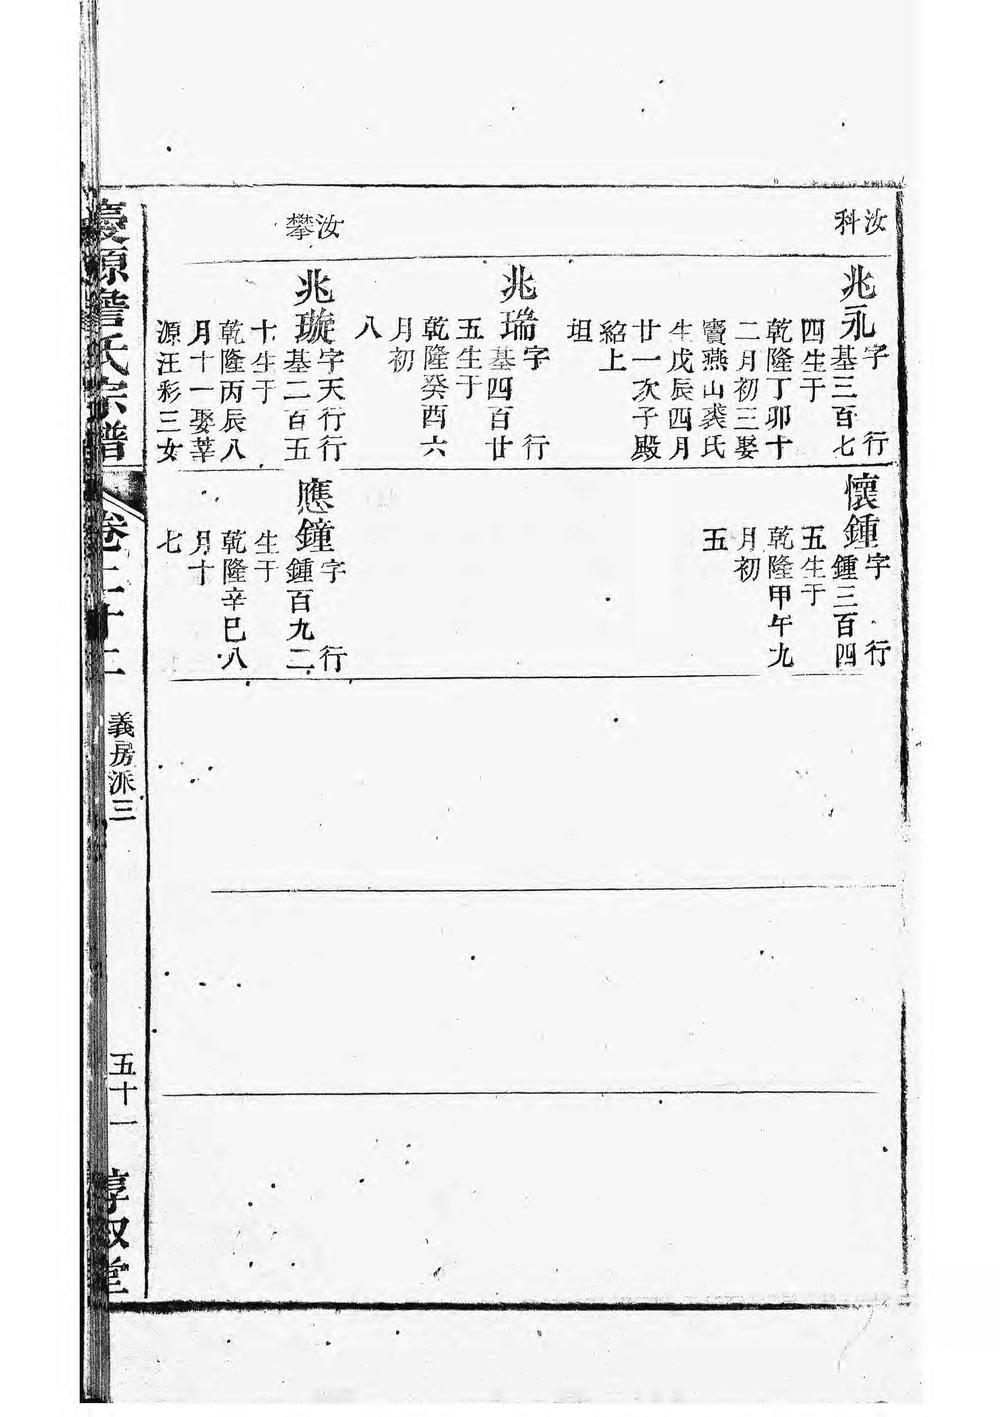 汝科
兆永字　行
基三百七
四生于
乾隆丁卯十
二月初三娶
竇燕山裘氏
生戊辰四月
廿一次子殿
紹上
坦
兆瑞字　行
基四百廿
五生于
乾隆癸酉六
月初
八
汝攀
兆璇字天行行
基二百五
十生于
乾隆丙辰八
月十一娶莘
源汪彩三女
懷鍾字　行
鍾三百四
五生于
乾隆甲午九
月初
五
應鐘字　行
鍾百九二
生于
乾隆辛巳八
月十
七
慶源詹氏宗譜
卷二十二
義房派三
五十一
惇叙堂